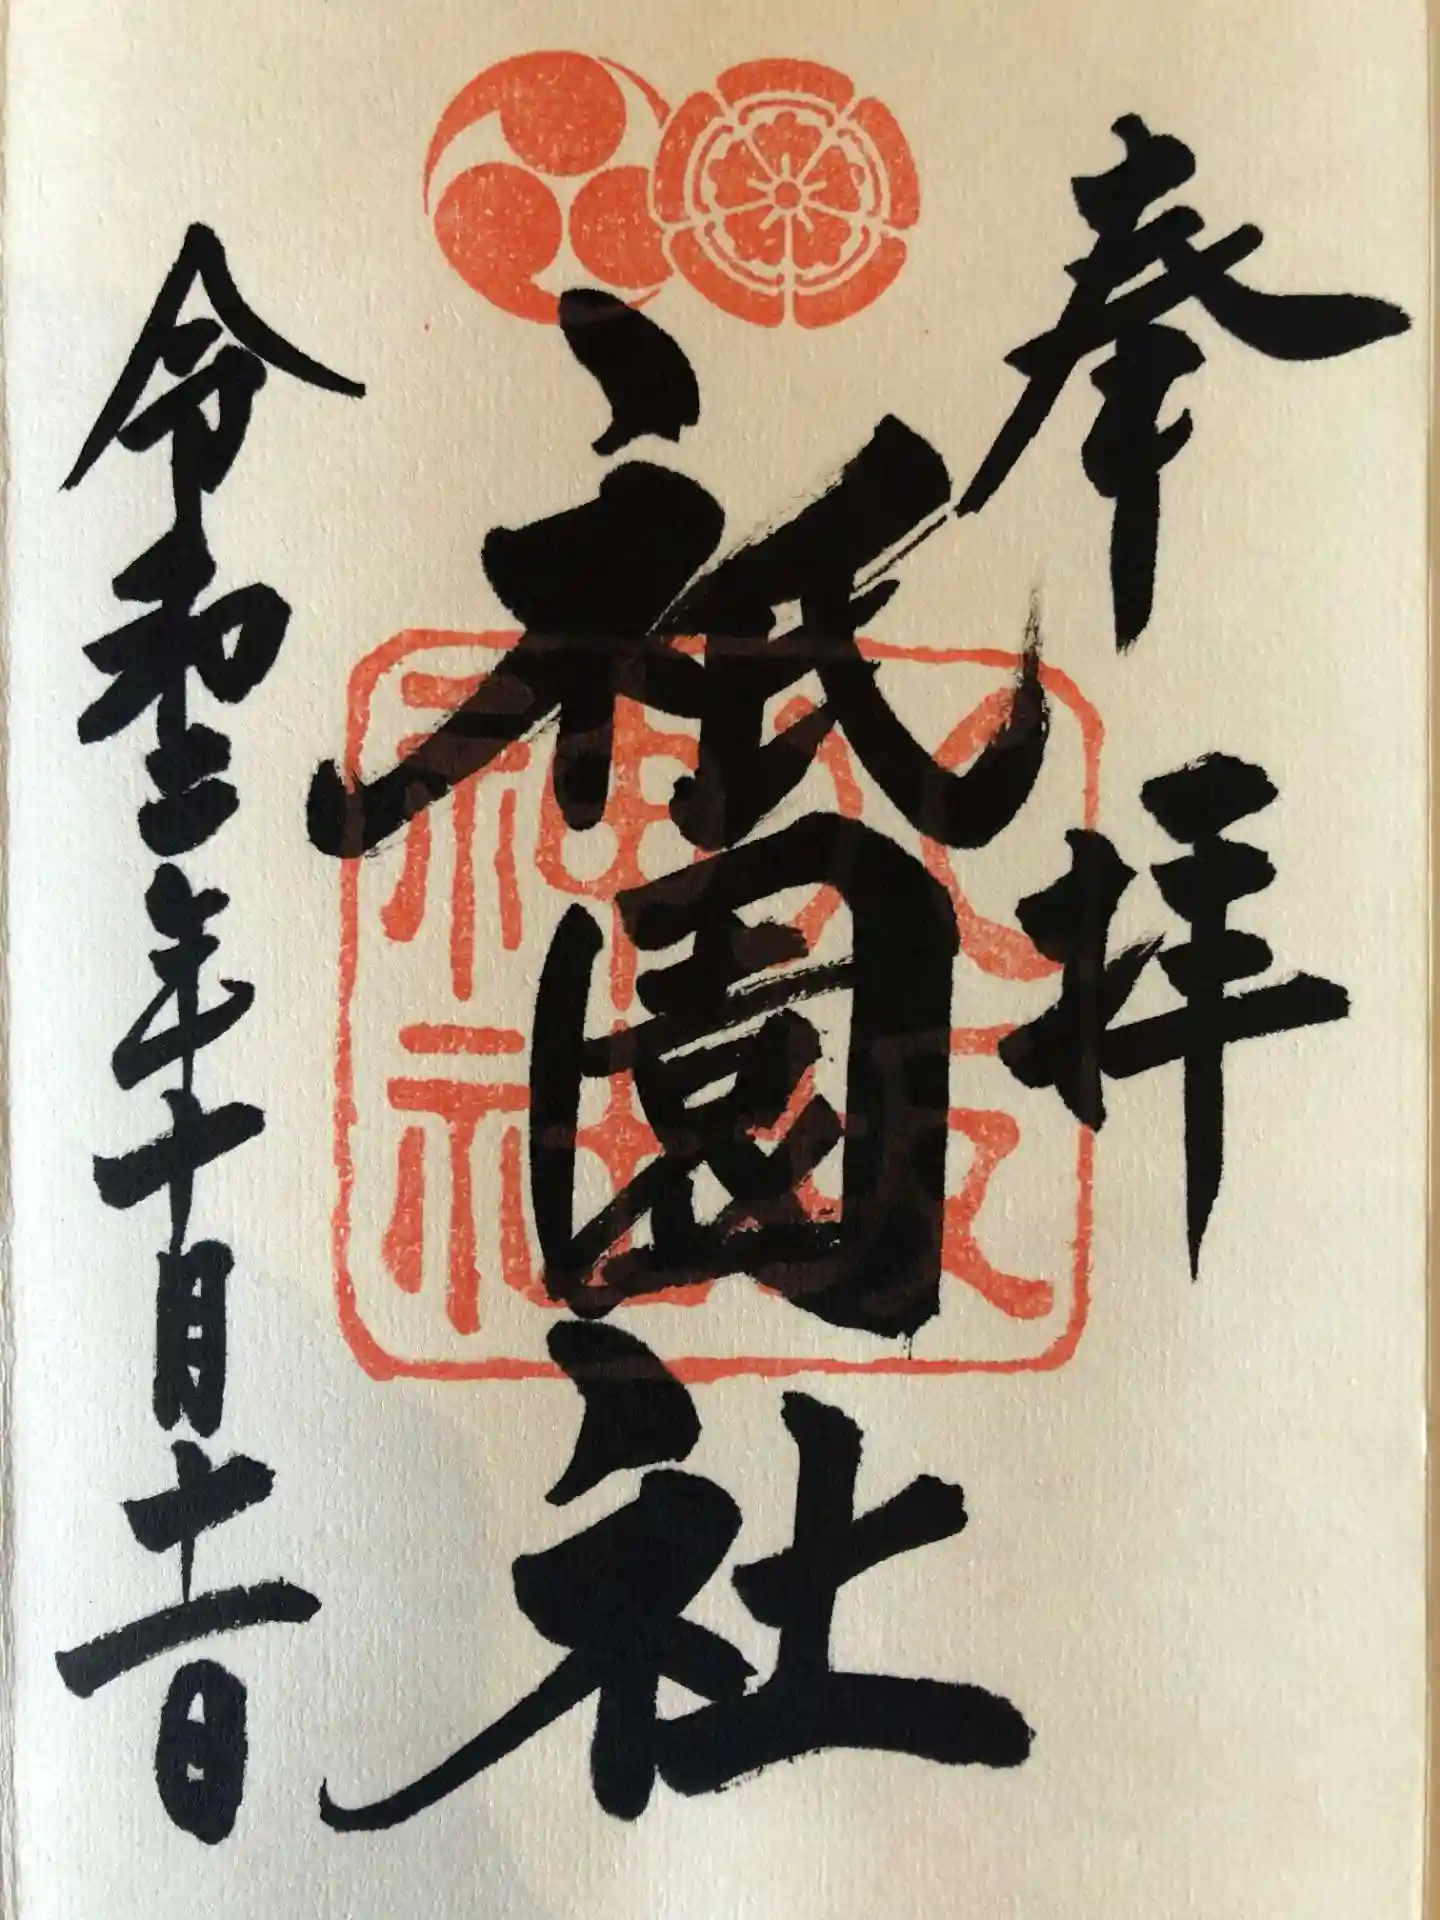 奉拝
祇園社
八坂
神社
令和二年十月十一日